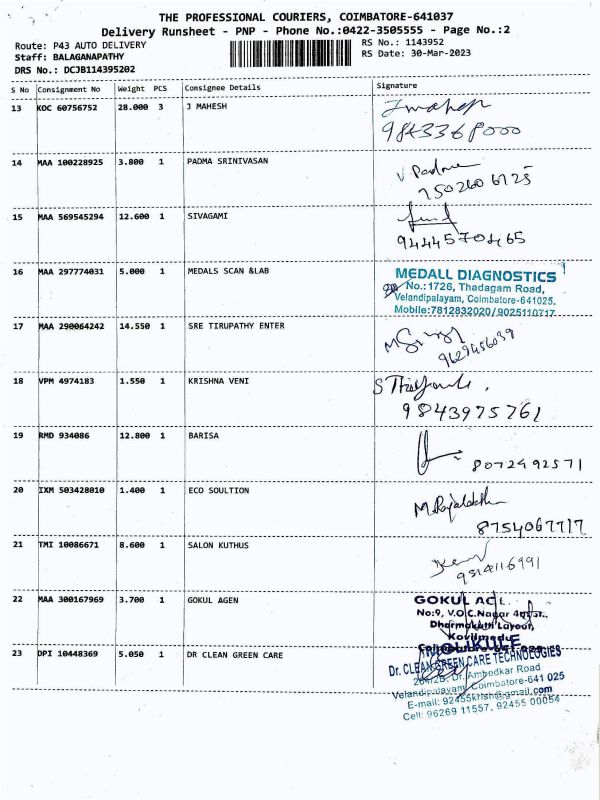 THE PROFESSIONAL COURIERS, COIMBATORE-641037
Delivery Runsheet - PNP - Phone No.:0422-3505555 - Page No.:2
Route: P43 AUTO DELIVERY
RS No.: 1143952
Staff: BALAGANAPATHY
RS Date: 30-Mar-2023
DRS No.: DCJB114395202
S No Consignment No Weight PCS Consignee Details Signature
13 KOC 60756752 28.000 3 J MAHESH
9843368000
14 MAA 100228925 3.800 1 PADMA SRINIVASAN V. Padma
7502606725
15 MAA 569545294 12.600 1 SIVAGAMI
9444570465
16 MAA 297774031 5.000 1 MEDALS SCAN &LAB MEDALL DIAGNOSTICS
No.:1726, Thadagam Road,
Velandipalayam, Coimbatore-641025.
Mobile:7812832020/9025110717
17 MAA 290064242 14.550 1 SRE TIRUPATHY ENTER
9629456039
18 VPM 4974183 1.550 1 KRISHNA VENI
9843975761
19 RMD 934086 12.800 1 BARISA
8072492571
20 IXM 503428010 1.400 1 ECO SOULTION
8754067717
21 TMI 10086671 8.600 1 SALON KUTHUS
9514116991
22 MAA 300167969 3.700 1 GOKUL AGEN GOKUL
No:9, V.O.C.Nagar
Layout,
Kovilmedu
23 DPI 10448369 5.050 1 DR CLEAN GREEN CARE
Dr. CLEAN GREEN CARE TECHNOLOGIES
Dr. Ambedkar Road
Velandipalayam, Coimbatore-641 025
E-mail: 92455krish@gmail.com
Cell: 96269 11557, 92455 00054